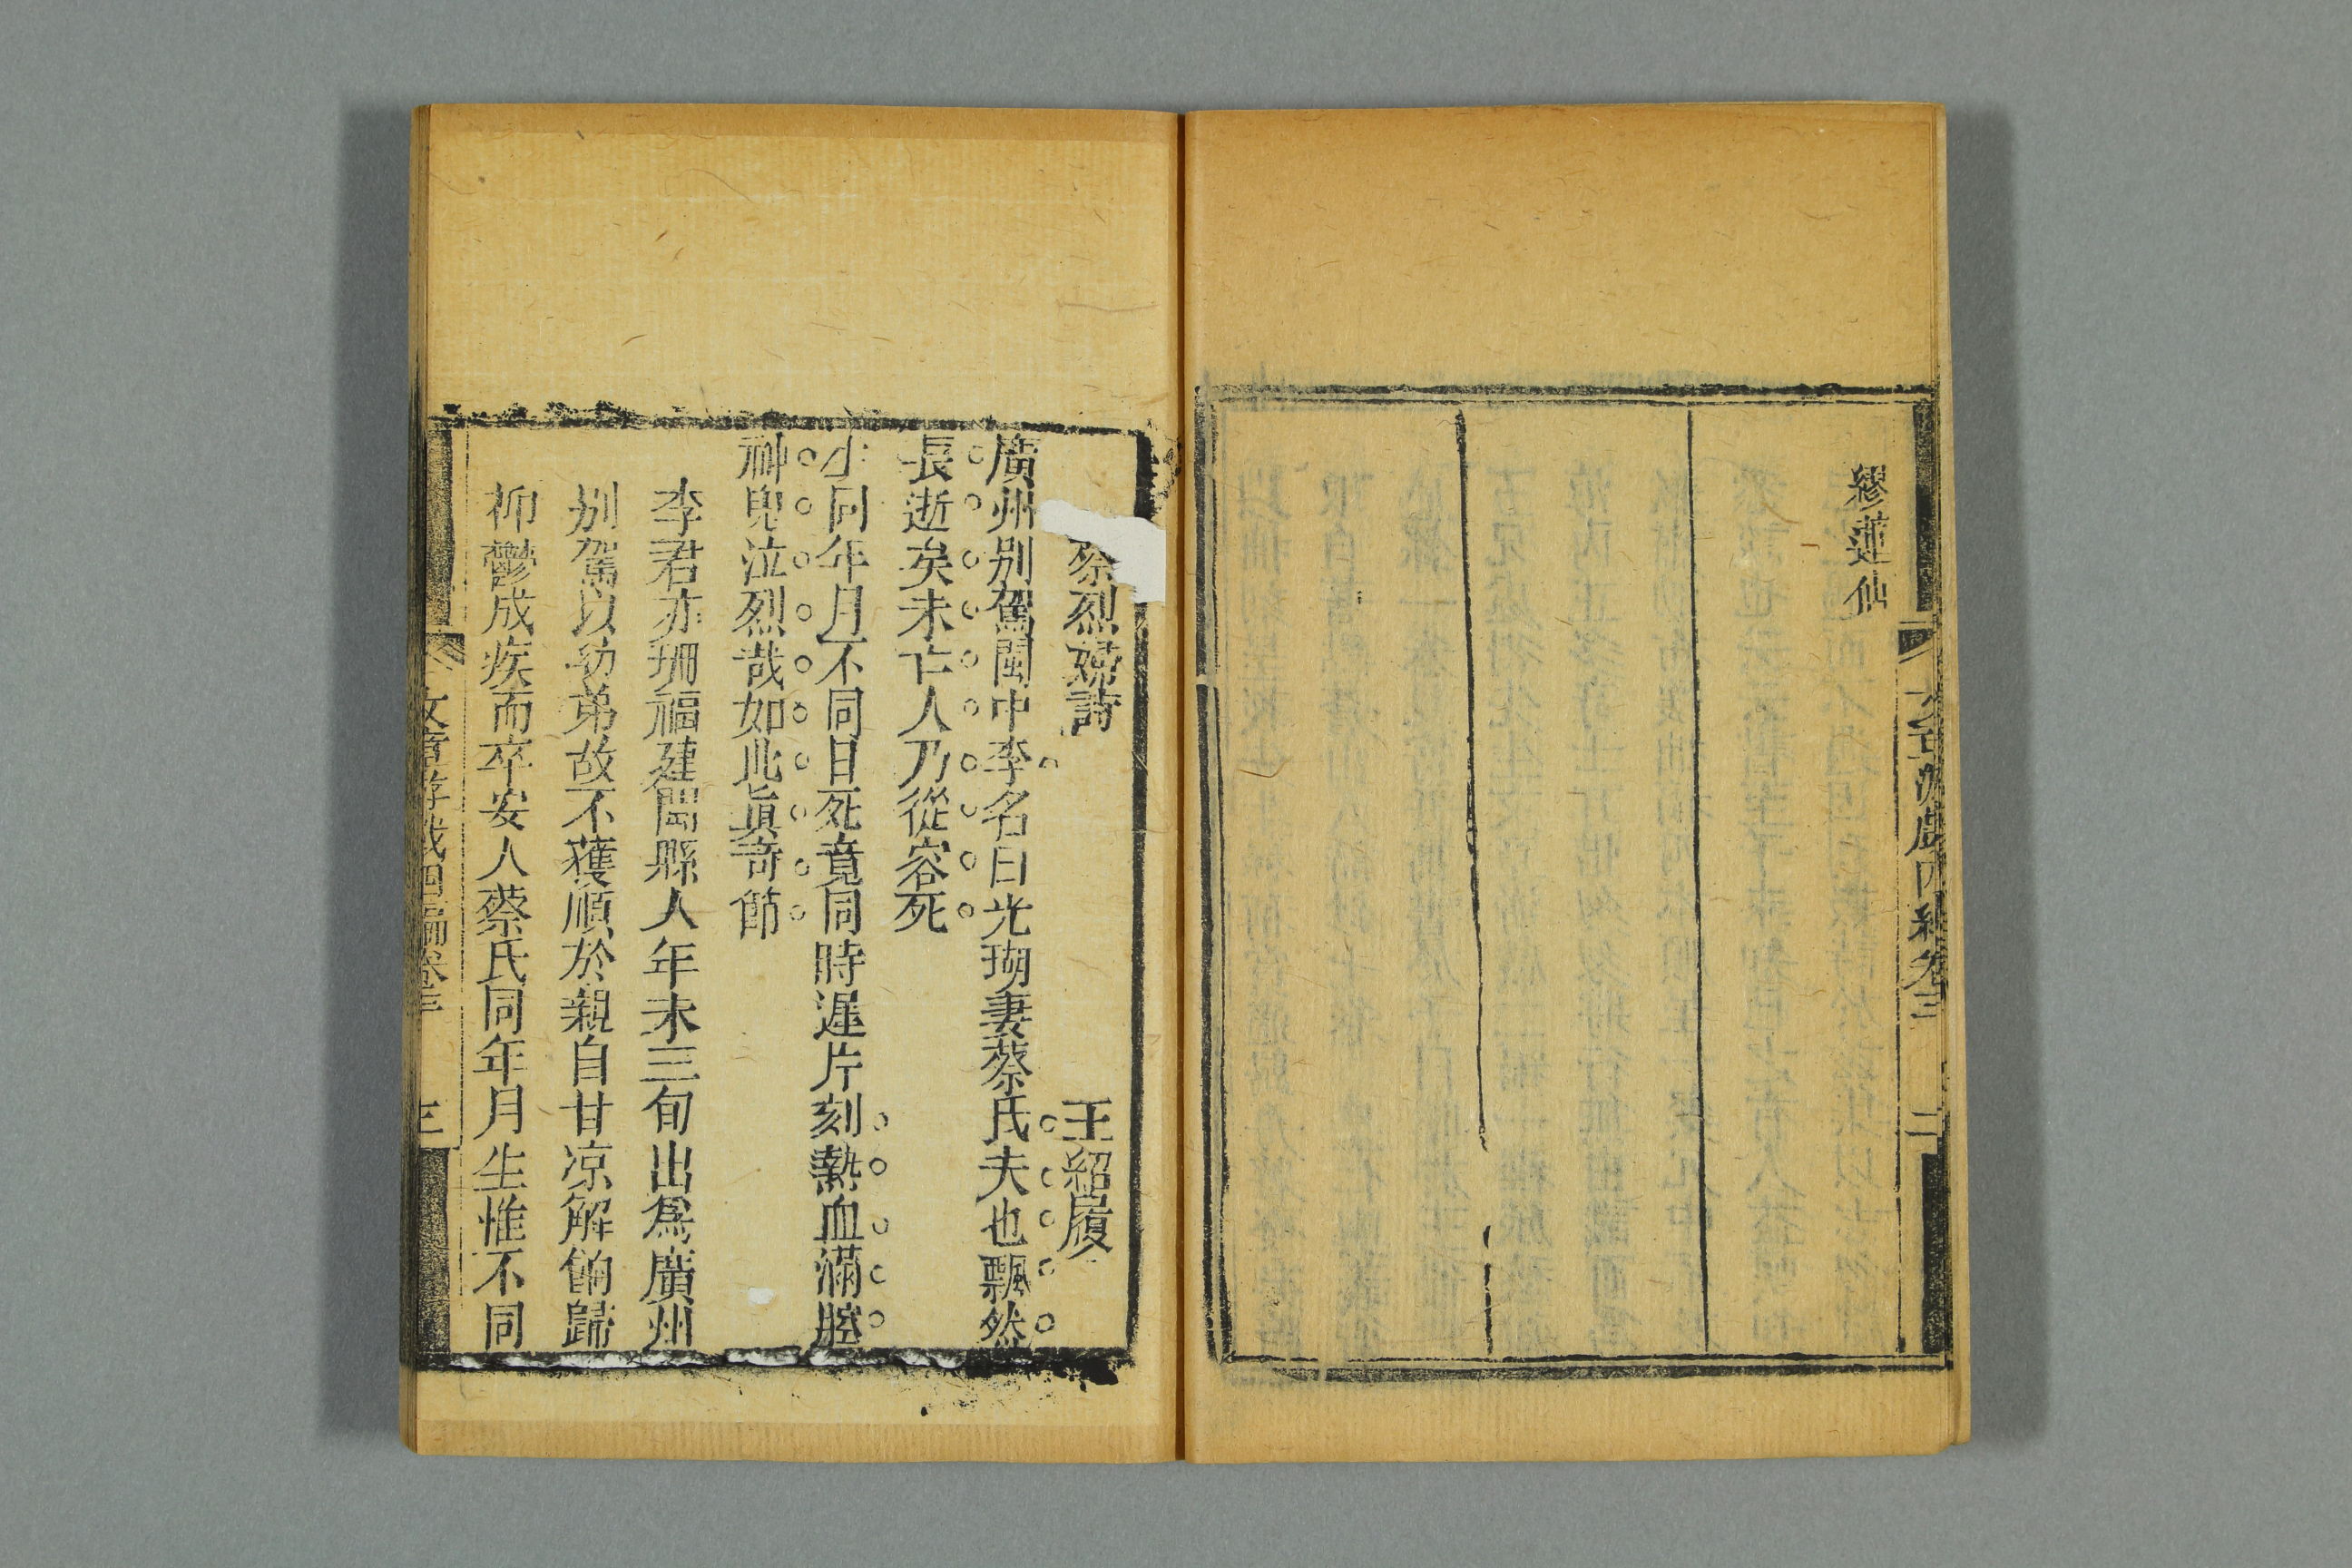 繆蓮仙
文章游戲四編卷三 二
蔡烈婦詩 王紹履
廣州別駕閩中李名曰光瑚妻蔡氏夫也飄然
長逝矣未亡人乃從容死
生同年月不同日死竟同時遲片刻熱血滿腔
神鬼泣烈哉如此真奇節
李君亦珊福建閩縣人年未三旬出為廣州
別駕以幼弟故不獲順於親自甘凉解餉歸
抑鬱成疾而卒安人蔡氏同年月生惟不同
文章游戲四編卷三 三